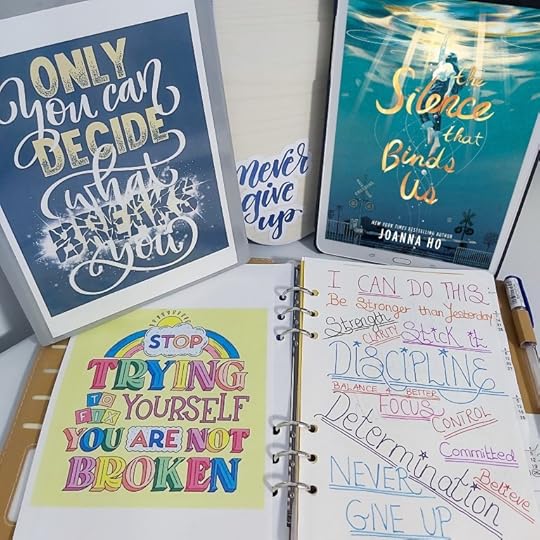 ONLY
you can
DECIDE
what
BREAKS
you
never
give
up
the
Silence
that
Binds
Us
NEW YORK TIMES BESTSELLING AUTHOR
JOANNA HO
STOP
TRYING
TO FIX YOURSELF
YOU ARE NOT
BROKEN
I CAN DO THIS
Be Stronger than Yesterday
Strength CLARITY Stick it
DISCIPLINE
BALANCE & BETTER
FOCUS
CONTROL
Determination
Committed
Believe
NEVER
GIVE UP